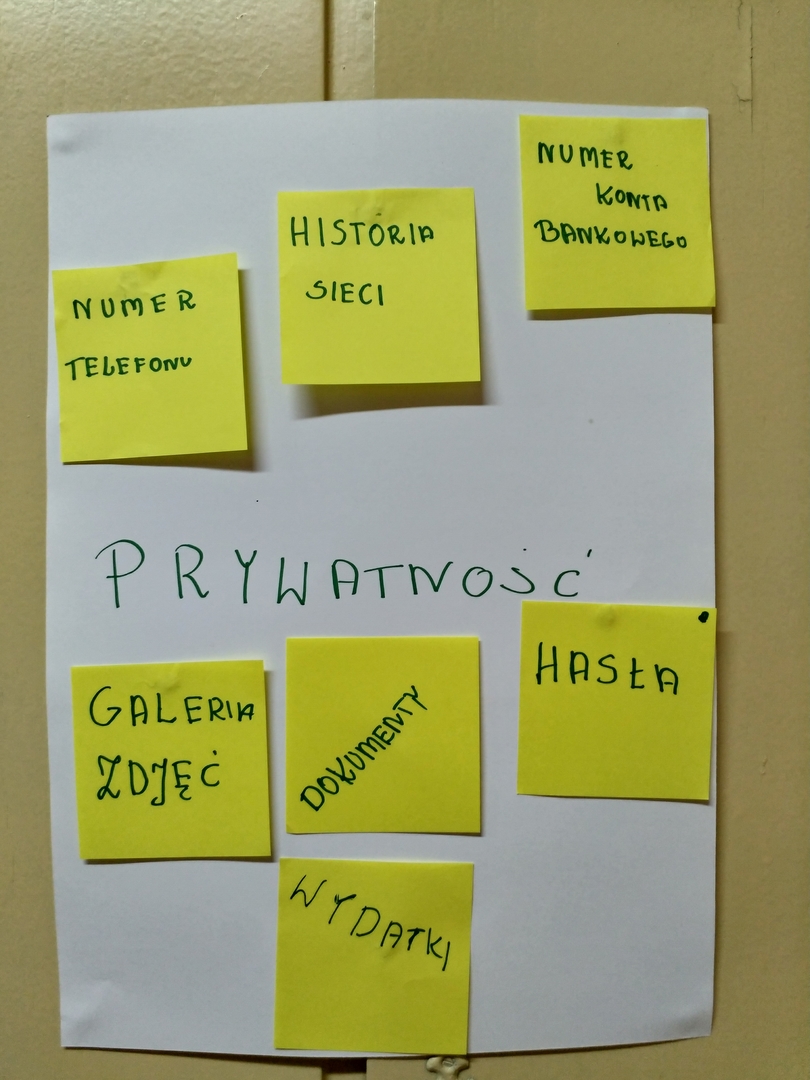 NUMER
KONTA
BANKOWEGO
HISTORIA
SIECI
NUMER
TELEFONU
PRYWATNOŚĆ
GALERIA
ZDJĘĆ
DOKUMENTY
HASŁA
WYDATKI